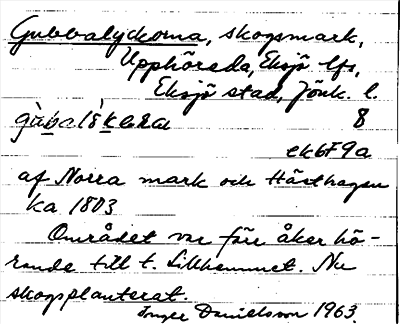 Gubbalyckorna, skogsmark,
Upphöreda, Eksjö lfs,
Eksjö stad, Jönk. l.
8
ek6F9a
af Norra mark och Hästhagen
ka 1803
Området var förr åker hö-
rande till t. Lillhemmet. Nu
skogsplanterat.
Inger Danielsson 1963.